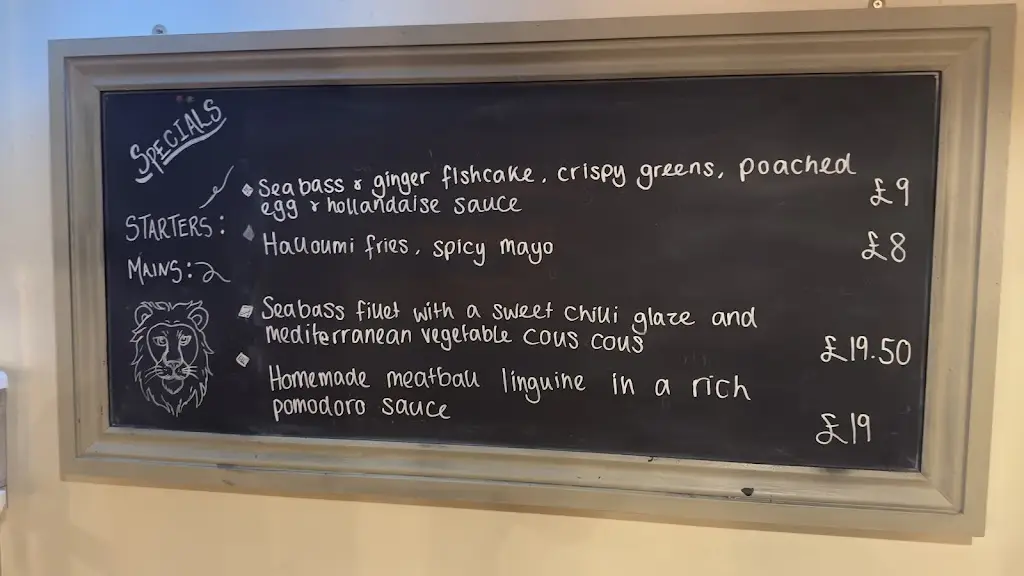 SPECIALS
STARTERS:
Seabass & ginger fishcake, crispy greens, poached
egg & hollandaise sauce
£9
Halloumi fries, spicy mayo
£8
MAINS:
Seabass fillet with a sweet chilli glaze and
mediterranean vegetable cous cous
£19.50
Homemade meatball linguine in a rich
pomodoro sauce
£19